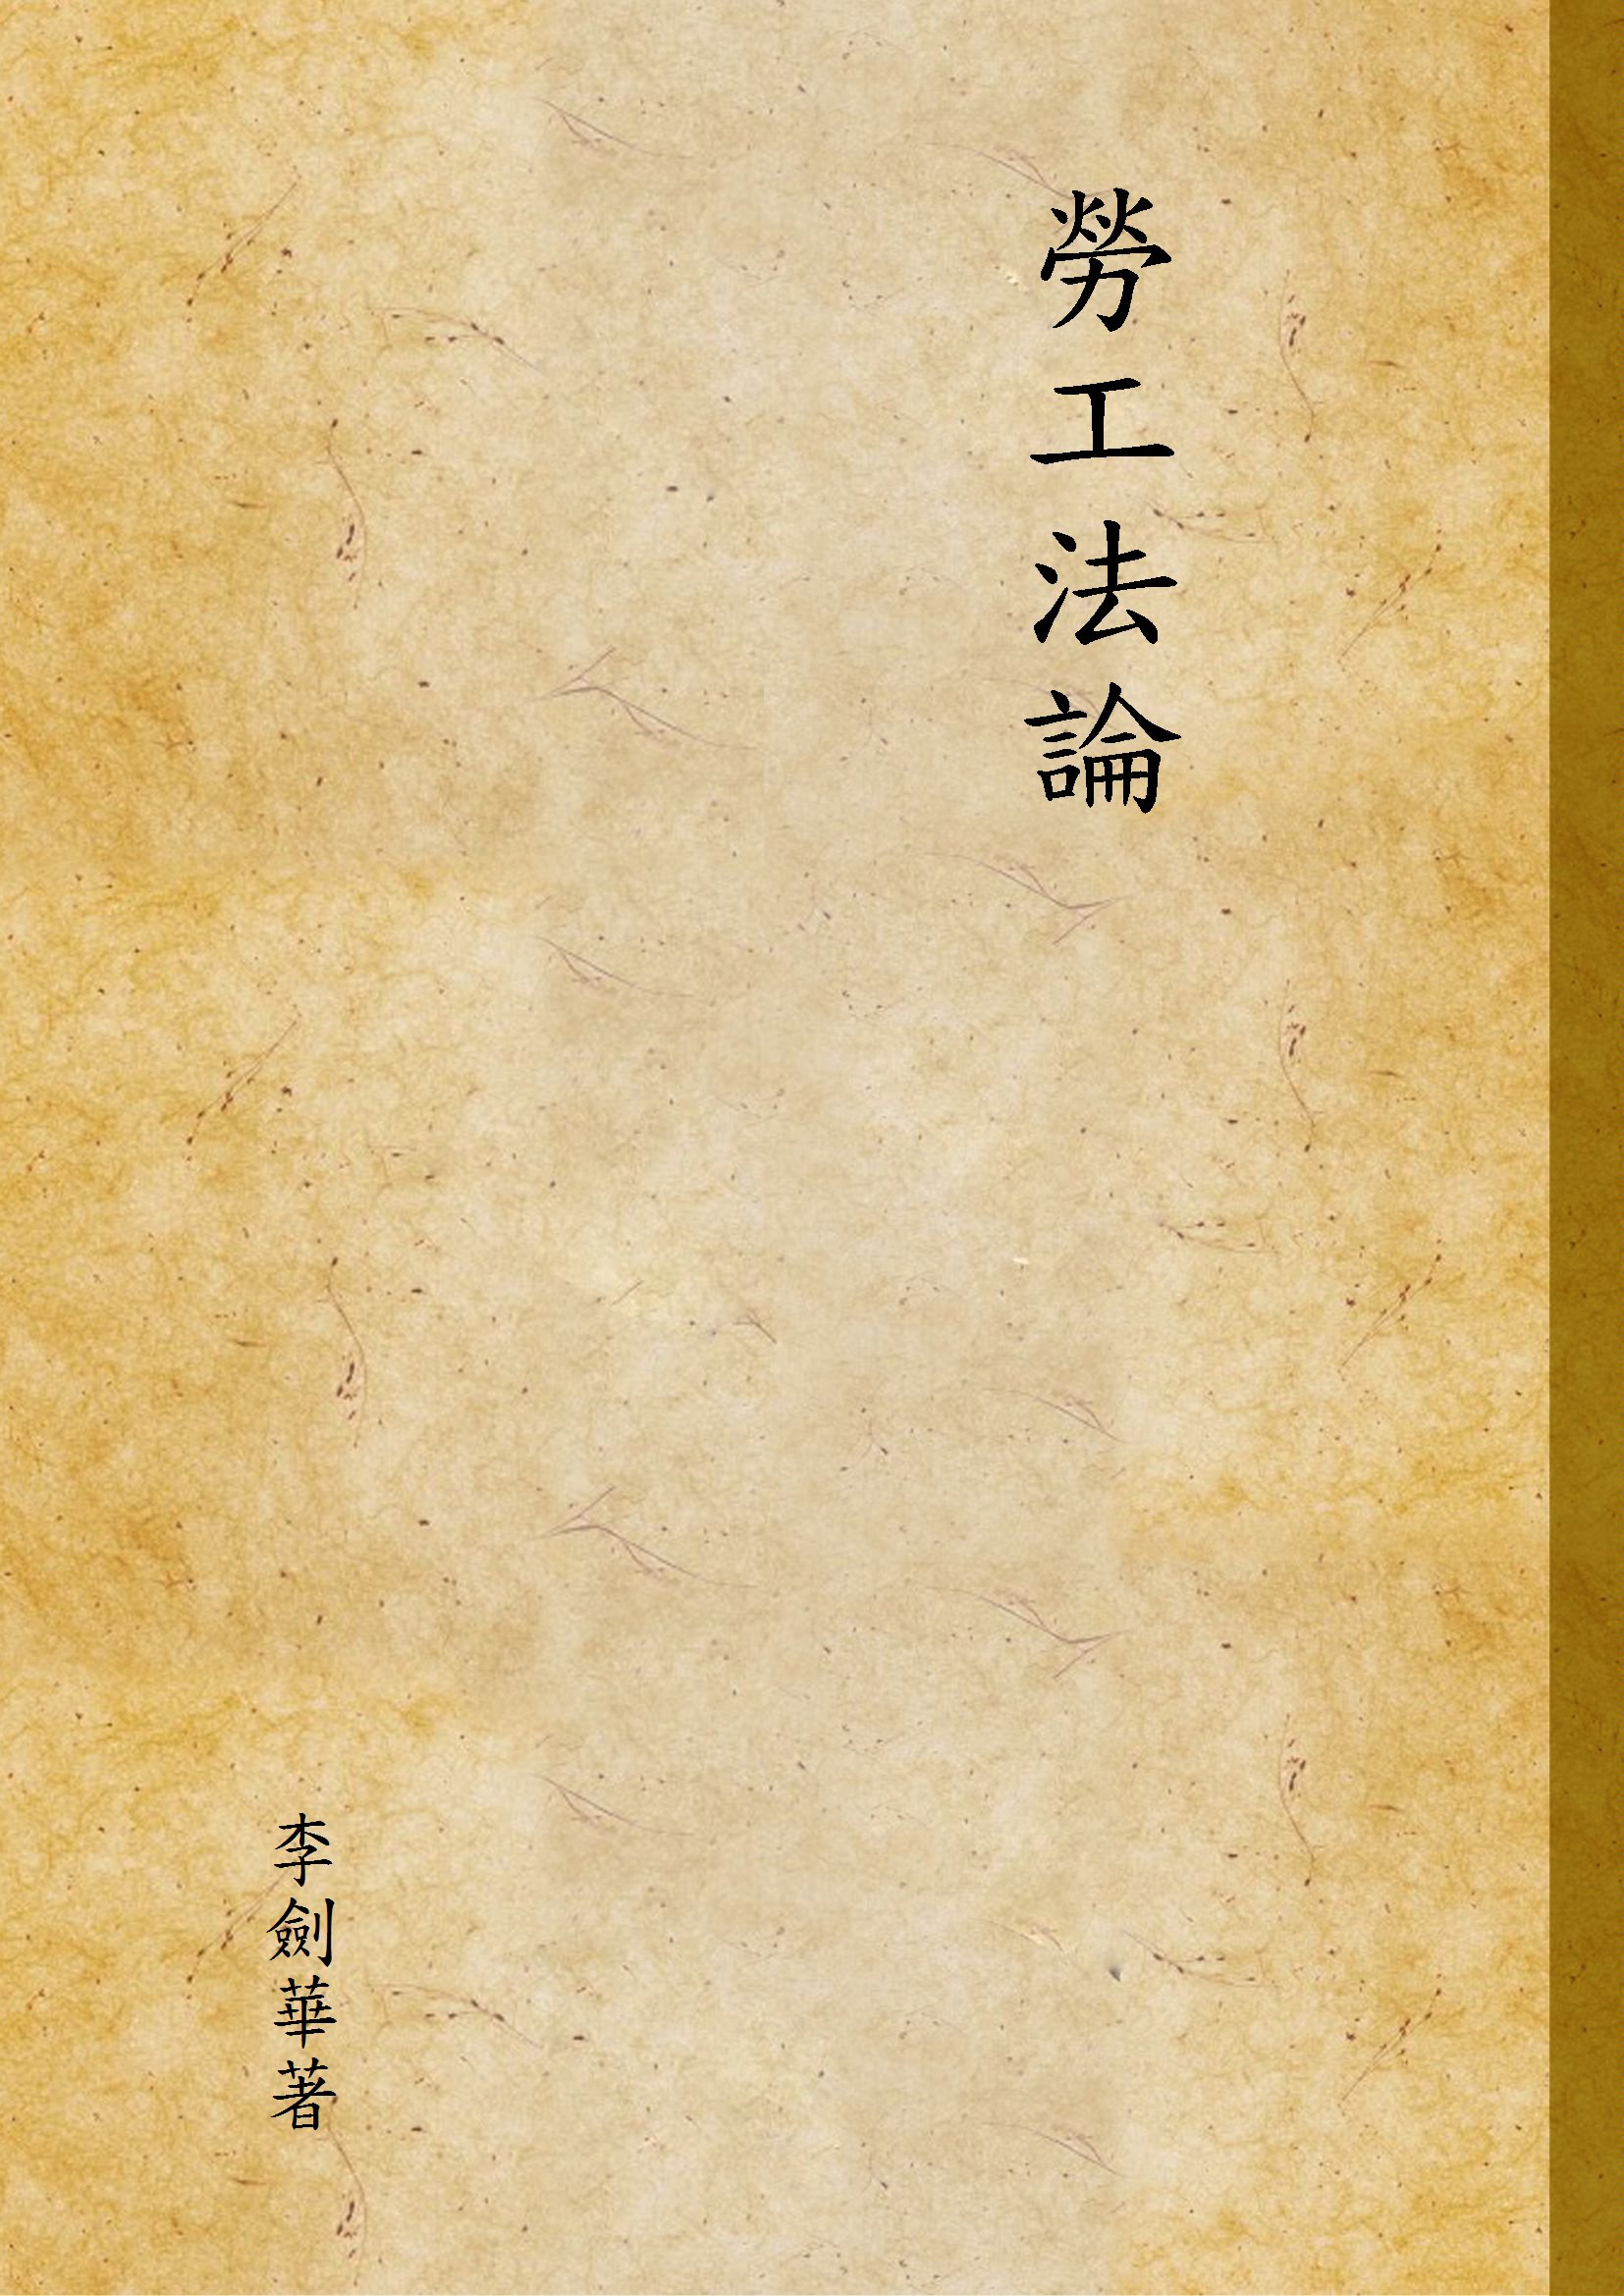 勞工法論
李劍華著